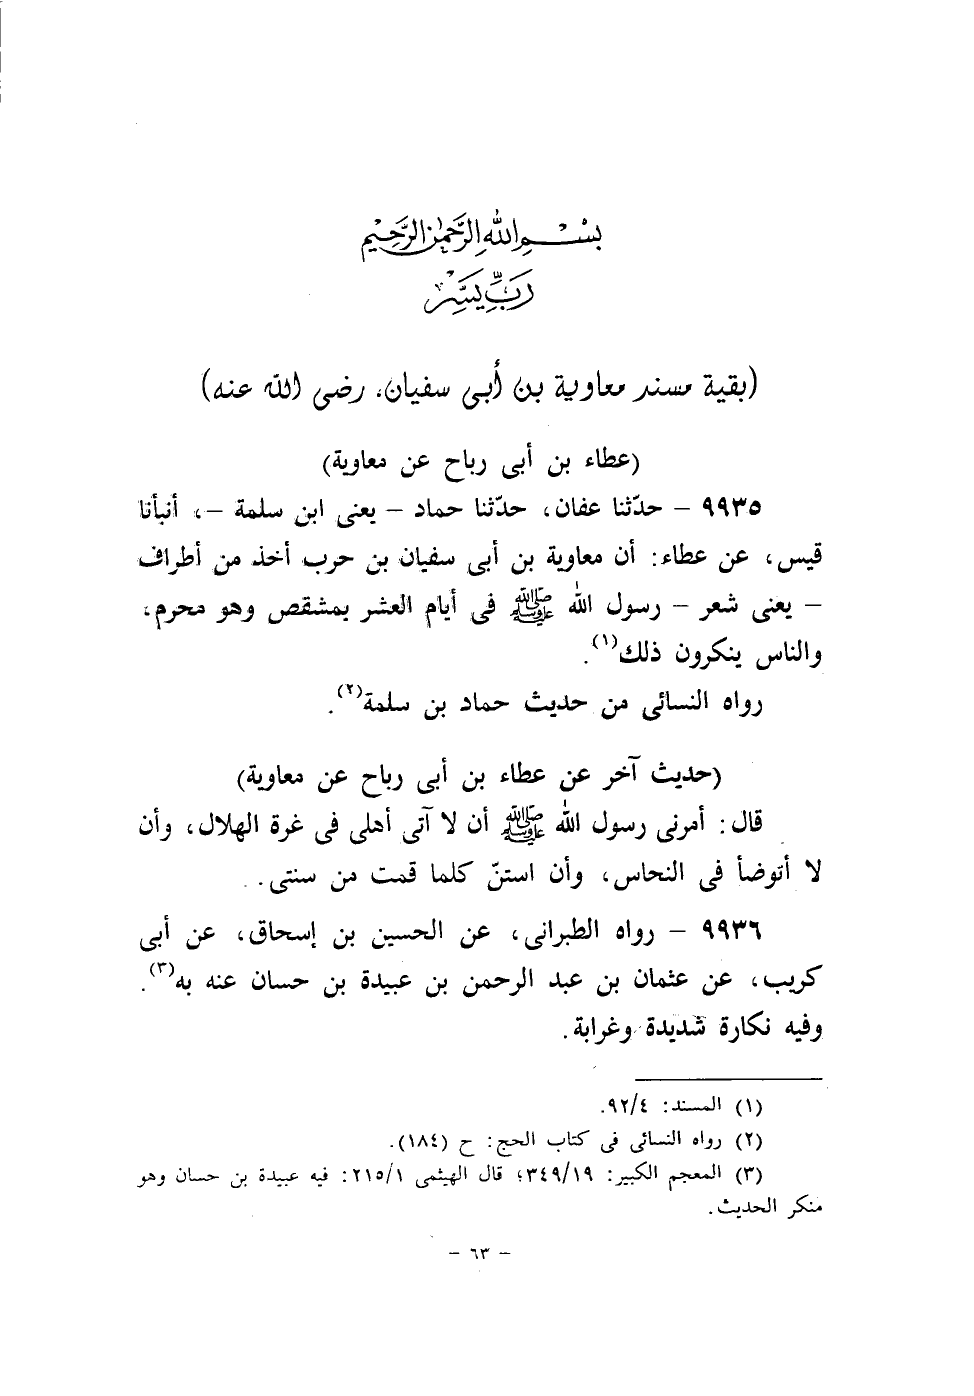 بسم الله الرحمن الرحيم
رب يسر
(بقية مسند معاوية بن أبى سفيان، رضى الله عنه)
(عطاء بن أبى رباح عن معاوية)
٩٩٣٥ – حدّثنا عفان، حدّثنا حماد – يعنى ابن سلمة –، أنبأنا
قيس، عن عطاء: أن معاوية بن أبى سفيان بن حرب أخذ من أطراف
– يعنى شعر – رسول الله ﷺ فى أيام العشر بمشقص وهو محرم،
والناس ينكرون ذلك(١).
رواه النسائى من حديث حماد بن سلمة(٢).
(حديث آخر عن عطاء بن أبى رباح عن معاوية)
قال: أمرنى رسول الله ﷺ أن لا آتى أهلى فى غرة الهلال، وأن
لا أتوضأ فى النحاس، وأن استنّ كلما قمت من سنتى.
٩٩٣٦ – رواه الطبرانى، عن الحسين بن إسحاق، عن أبى
كريب، عن عثمان بن عبد الرحمن بن عبيدة بن حسان عنه به(٣).
وفيه نكارة شديدة وغرابة.
(١) المسند: ٩٢/٤.
(٢) رواه النسائى فى كتاب الحج: ح (١٨٤).
(٣) المعجم الكبير: ٣٤٩/١٩؛ قال الهيثمى ٢١٥/١: فيه عبيدة بن حسان وهو
منكر الحديث.
– ٦٣ –